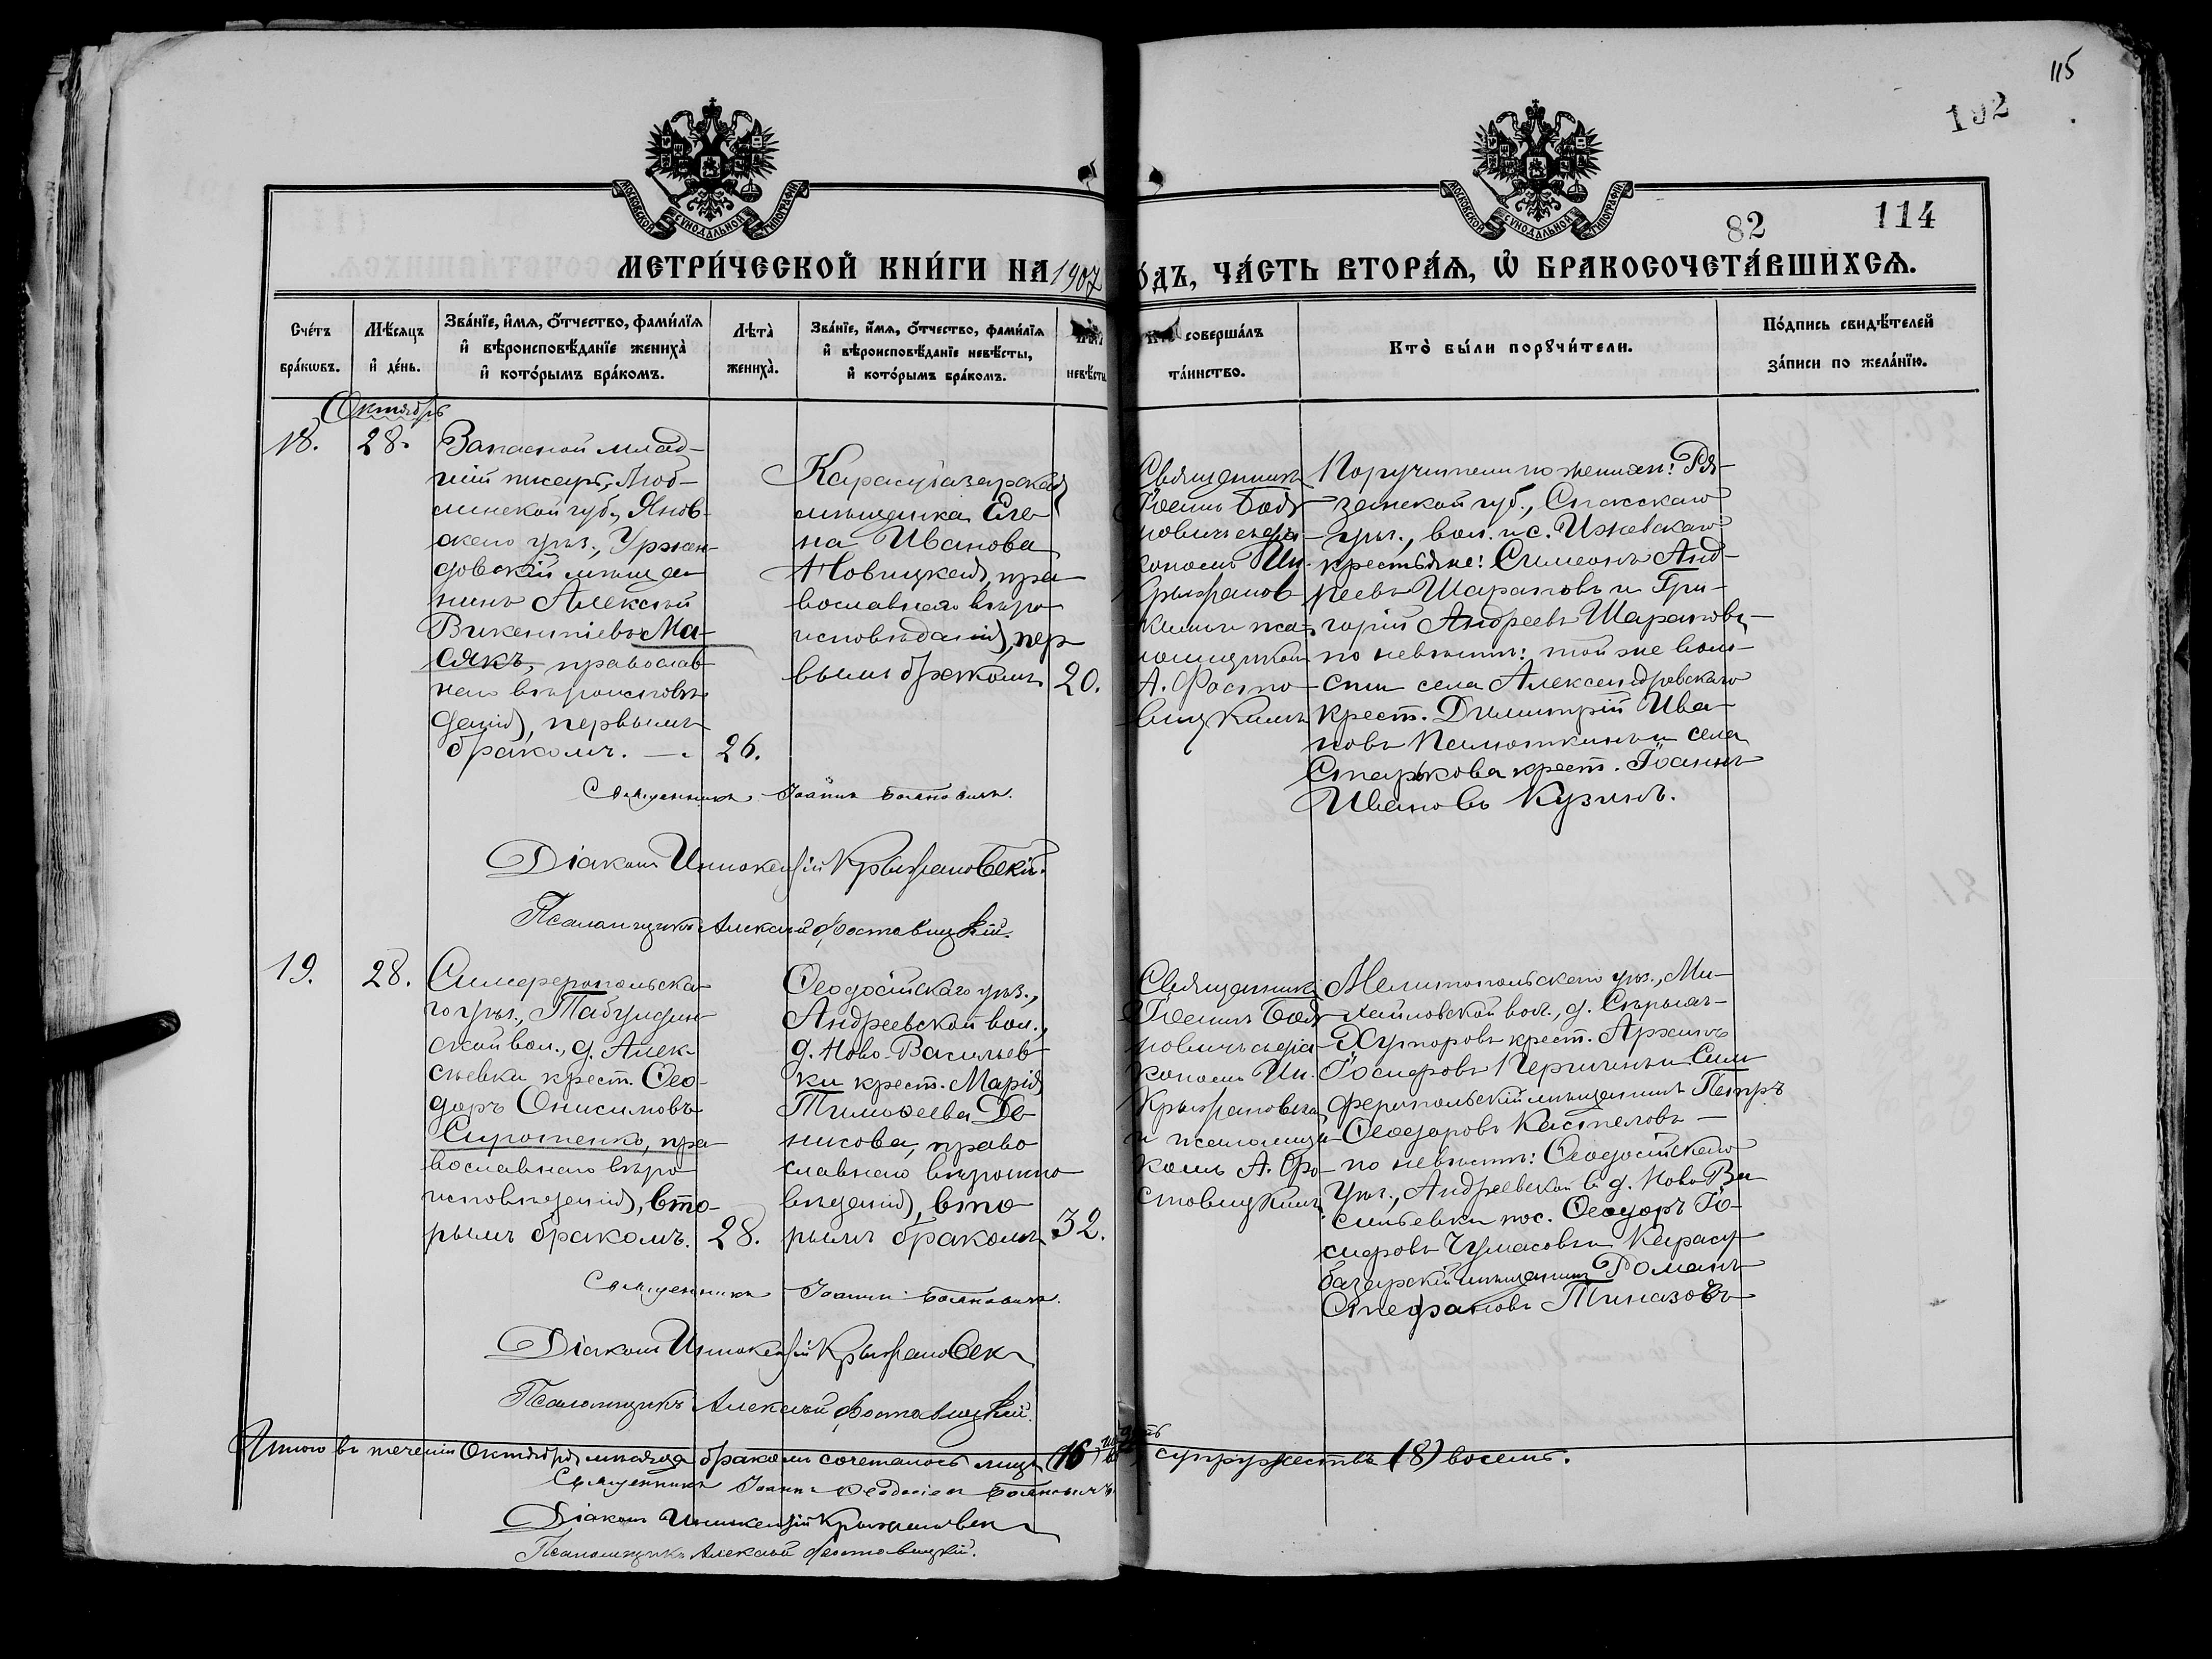 115
192
82
114
МОСКОВСКОЙ СѴНОДАЛЬНОЙ ТИПОГРАФІИ
МОСКОВСКОЙ СѴНОДАЛЬНОЙ ТИПОГРАФІИ
МЕТРИ́ЧЕСКОЙ КНИ́ГИ НА 1907
О́ДЪ, ЧА́СТЬ ВТОРА́Я, Ѡ҆ БРАКОСОЧЕТА́ВШИХСЯ.
Сче́тъ
бра́кѡвъ.
Мѣ́сяцъ
и҆ де́нь.
Зва́нїе, и҆́мя, ѻ҆́тчество, фами́лїя
и҆ вѣроисповѣ́данїе жениха̀
и҆ кото́рымъ бра́комъ.
Лѣта̀
жениха̀.
Зва́нїе, и҆́мя, ѻ҆́тчество, фами́лїя
и҆ вѣроисповѣ́данїе невѣ́сты,
и҆ кото́рымъ бра́комъ.
невѣ́сты
совершáлъ
та́инство.
Кто̀ бы́ли порꙋчи́тели.
По́дпись свидѣ́телей
за́писи по жела́нїю.
Октябрь
18.
28.
Запасной млад-
шій писарь, Люб-
линской губ., Янов-
скаго уѣз., Уржен-
довскій мѣща-
нинъ Алексѣй
Викентіевъ Ма-
сякъ, православ-
наго вѣроисповѣ-
данія, первымъ
бракомъ. —.
26.
Карасубазарская
мѣщанка Еле-
на Иванова
Новицкая, пра-
вославнаго вѣро-
исповѣданія, пер-
вымъ бракомъ
20.
Священникъ
Іоаннъ Боя-
новичъ съ діа-
кономъ Ин.
Крыжанов-
скимъ и пса-
ломщикомъ
А. Фосто-
вицкимъ
Поручители по женихѣ: Ря-
занской губ., Спасскаго
уѣз., вол. и с. Ижевскаго
крестьяне: Симеонъ Анд-
реевъ Шараповъ и Гри-
горій Андреевъ Шараповъ,-
по невѣстѣ: той же воло-
сти села Александровскаго
крест. Димитрій Ива-
новъ и села
Старкова крест. Іоаннъ
Ивановъ Кузинъ.
Священникъ Іоаннъ Бояновичъ.
Діаконъ Иннокентій Крыжановскій.
Псаломщикъ Алексѣй Фостовицкій.
19.
28.
Симферопольска-
го уѣз., Табулдин-
ской вол., д. Алек-
сѣевки крест. Ѳео-
доръ Онисимовъ
Сиротенко, пра-
вославнаго вѣро-
исповѣданія, вто-
рымъ бракомъ.
28.
Ѳеодосійскаго уѣз.,
Андреевской вол.,
д. Ново-Васильев-
ки крест. Марія
Тимоѳеева Де-
нисова, право-
славнаго вѣроиспо-
вѣданія, вто-
рымъ бракомъ
32.
Священникъ
Іоаннъ Боя-
новичъ съ діа-
кономъ Ин.
Крыжановск
и псаломщи-
комъ А. Фо-
стовицкимъ.
Мелитопольскаго уѣз., Ми-
хайловской вол., д.
Хуторовъ крест. Архипъ
Іосифовъ и Сим-
феропольскій мѣщанинъ Петръ
Ѳеодоровъ —
по невѣстѣ: Ѳеодосійскаго
уѣз., Андреевской в. д. Ново-Ва-
сильевки пос. Ѳеодоръ Іо-
сифовъ Чумасовъ и Карасу-
базарскій мѣщанинъ Романъ
Стефановъ Тиназовъ
Священникъ Іоаннъ Бояновичъ.
Діаконъ Иннокентій Крыжановск
Псаломщикъ Алексѣй Фостовицкій.
Итого въ теченіи Октября мѣсяца бракомъ сочеталось лицъ (16)
супружествъ (8) восемь.
Священникъ Іоаннъ Бояновичъ
Діаконъ Иннокентій Крыжановск
Псаломщикъ Алексѣй Фостовицкій.